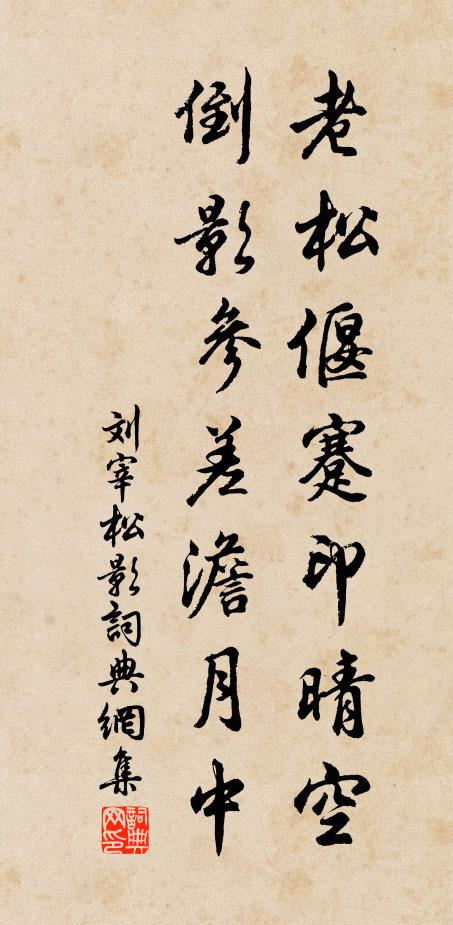 老松偃蹇印晴空
倒影參差澹月中
刘宰松影詞典網集
詞典网印